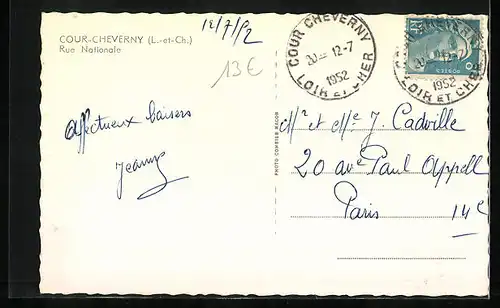 COUR-CHEVERNY (L.-et-Ch.)
Rue Nationale
12/7/52
13€
COUR CHEVERNY
20H 12-7
1952
LOIR ET CHER
CHEVERNY
12-7
1952
LOIR ET CHER
Affectueux baisers
Jeanne
Mr et Me J. Cadville
20 ave Paul Appell
Paris 14e